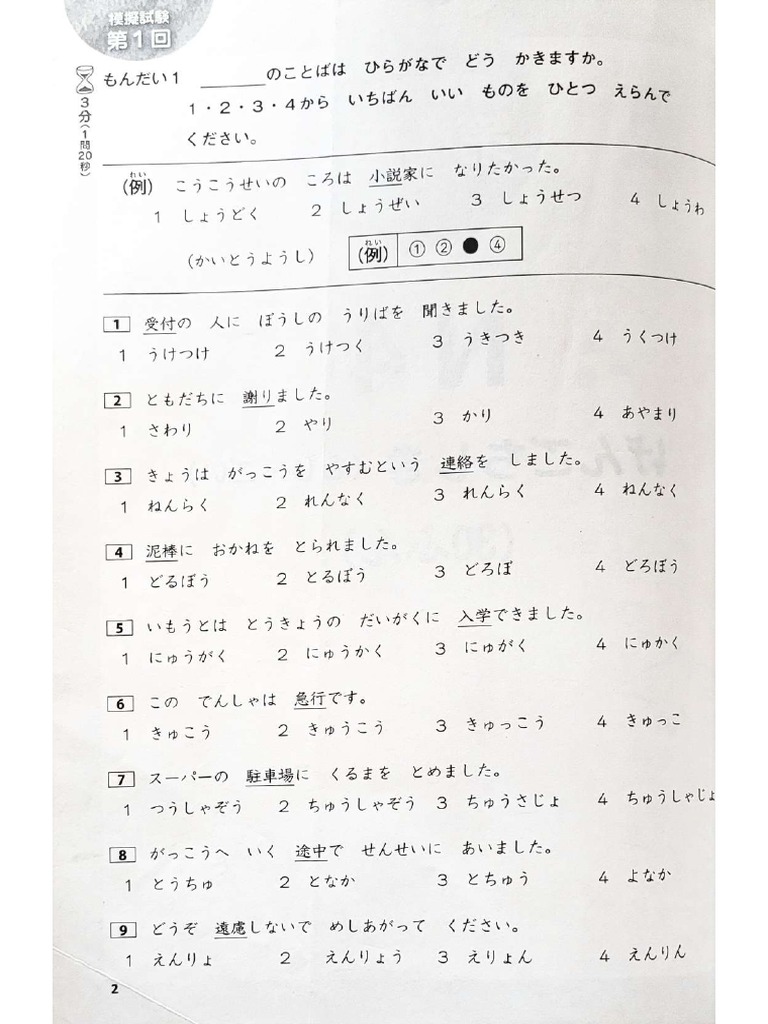 模擬試験
第1回
3分(1問20秒)
もんだい1 ______のことばは ひらがなで どう かきますか。
1・2・3・4から いちばん いい ものを ひとつ えらんで
ください。
(例) こうこうせいの ころは 小説家に なりたかった。
れい
1 しょうどく 2 しょうぜい 3 しょうせつ 4 しょうわ
(かいとうようし) (例) ① ② ● ④
れい
1 受付の 人に ぼうしの うりばを 聞きました。
1 うけつけ 2 うけつく 3 うきつき 4 うくつけ
2 ともだちに 謝りました。
1 さわり 2 やり 3 かり 4 あやまり
3 きょうは がっこうを やすむという 連絡を しました。
1 ねんらく 2 れんなく 3 れんらく 4 ねんなく
4 泥棒に おかねを とられました。
1 どるぼう 2 とるぼう 3 どろぼ 4 どろぼう
5 いもうとは とうきょうの だいがくに 入学できました。
1 にゅうがく 2 にゅうかく 3 にゅがく 4 にゅかく
6 この でんしゃは 急行です。
1 きゅこう 2 きゅうこう 3 きゅっこう 4 きゅっこ
7 スーパーの 駐車場に くるまを とめました。
1 つうしゃぞう 2 ちゅうしゃぞう 3 ちゅうさじょ 4 ちゅうしゃじょ
8 がっこうへ いく 途中で せんせいに あいました。
1 とうちゅ 2 となか 3 とちゅう 4 よなか
9 どうぞ 遠慮しないで めしあがって ください。
1 えんりょ 2 えんりょう 3 えりょん 4 えんりん
2